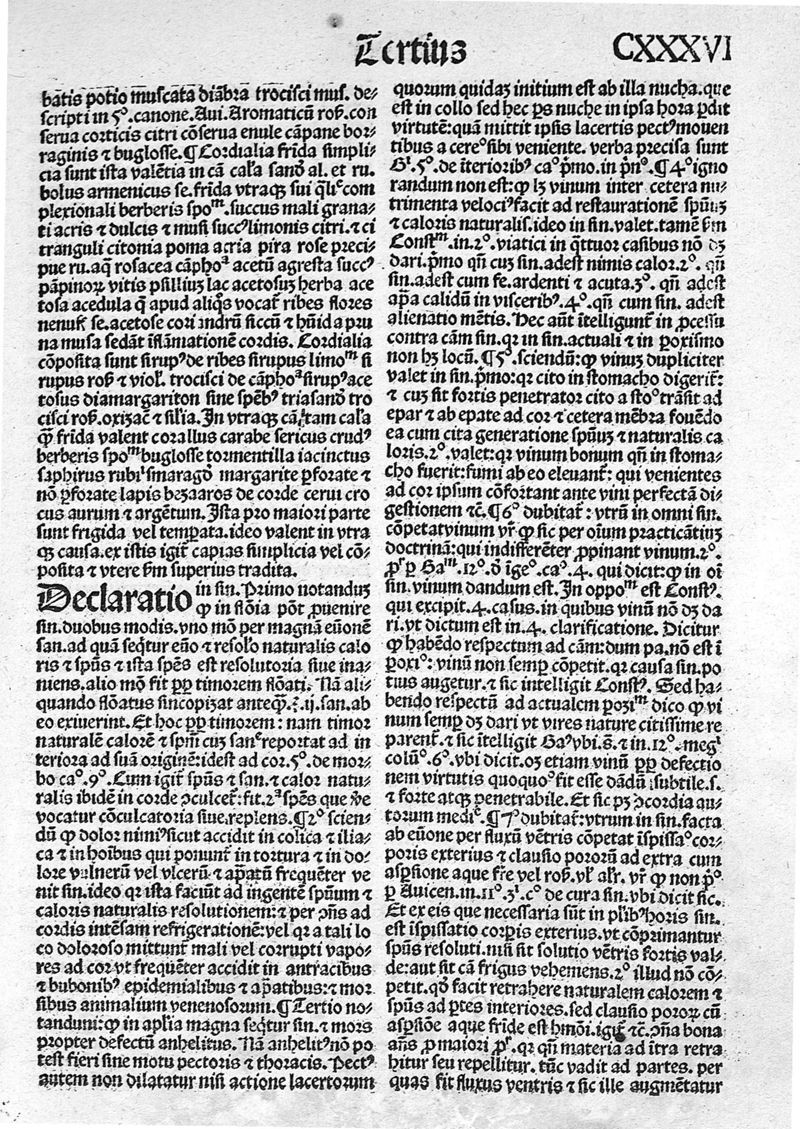 Tertius
CXXXVI
batis potio muscata diãbra trocisci mus. de-
scripti in 5º. canone. Aui. Aromaticũ ros. con
serua corticis citri cõserua enule cãpane bor-
raginis ⁊ buglosse. ¶ Cordialia frida simpli-
cia sunt ista valẽtia in cã cał'a sand' al. et ru.
bolus armenicus se. frida vtraq; sui q̃li⸗ com
plexionali berberis spoᵐ. succus mali grana-
ti acris ⁊ dulcis ⁊ musi succꝰ limonis citri. ⁊ ci
tranguli citonia poma acria pira rose preci-
pue ru. aq̃ rosacea cãphoᵃ acetũ agresta succꝰ
pãpinoꝝ vitis psillium lac acetosuz herba ace
tosa acedula q̃ apud aliq̃s vocat̃ ribes flores
nenuf. se. acetose coriandrũ siccũ ⁊ hũida pru
na musa sedãt ĩflãmationẽ cordis. Cordialia
cõposita sunt sirupꝰ de ribes sirupus limoᵐ si
rupus ros. ⁊ viol'. trocisci de cãphoᵃ sirupꝰ ace
tosus diamargariton sine spẽbꝰ triasandꝰ tro
cisci ros. oxizac̃ ⁊ silia. In vtraq; cã tam cał'a
q̃ȝ frida valent corallus carabe sericus crudꝰ
berberis spoᵐ buglosse tormentilla iacinctus
saphirus rubiꝰ smaragdꝰ margarite ꝑforate ⁊
nõ ꝑforate lapis bezaaros de corde cerui cro
cus aurum ⁊ argẽtum. Ista pro maiori parte
sunt frigida vel tẽperata. ideo valent in vtra
q; causa. ex istis igit̃ capias simplicia vel cõ-
posita ⁊ vtere ẞm superius tradita.
Declaratio in sin. Primo notanduz
ꝙ in flõia põt ꝓuenire
sin. duobus modis. vno mõ per magnã euõnẽ
san. ad quã seq̃tur euõ ⁊ resolõ naturalis calo
ris ⁊ spũs ⁊ ista spẽs est resolutoria siue ina-
niens. alio mõ fit ꝑꝑ timorem flõati. Nã ali-
quando flõatus sincopizat anteq̃ȝ. ℥. ij. san. ab
eo exiuerint. Et hoc ꝑꝑ timorem: nam timor
naturalẽ calorẽ ⁊ spm̃ cuz san⸗ reportat ad in
teriora ad suã originẽ: idest ad cor. 5º. de mor-
bo caº. 9º. Cum igit̃ spũs ⁊ san. ⁊ calor natu-
ralis ibidẽ in corde ↄculcet̃: fit. 2ᵃ spẽs que ṽe
vocatur cõculcatoria siue. replens. ¶ 2º scien-
dũ ꝙ dolor nimiꝰ sicut accidit in colica ⁊ iliã-
ca ⁊ in hoĩbus qui ponunt̃ in tortura ⁊ in do-
lore vulnerũ vel vlcerũ ⁊ apãtũ frequẽter ve
nit sin. ideo qr ista faciũt ad ingentẽ spũum ⁊
caloris naturalis resolutionem: ⁊ per ↄñs ad
cordis intẽsam refrigerationẽ: vel qr a tali lo
co doloroso mittunt̃ mali vel corrupti vapo-
res ad cor vt frequẽter accidit in antracibus
⁊ bubonibꝰ epidemialibus ⁊ apãtibus: ⁊ mor
sibus animalium venenosorum. ¶ Tertio no-
tanduni: ꝙ in aplia magna seq̃tur sin. ⁊ mors
propter defectũ anhelitus. Nã anhelitꝰ nõ po
test fieri sine motu pectoris ⁊ thoracis. Pectꝰ
autem non dilatatur nisi actione lacertorum
quorum quidaz initium est ab illa nucha. que
est in collo sed hec ꝑs nuche in ipsa hora ꝑdit
virtutẽ: quã mittit ipsis lacertis pectꝰ mouen
tibus a cereº sibi veniente. verba precisa sunt
Gꝉ. 5º. de ĩterioribꝰ caº pmo. in prĩnº. ¶ 4º igno
randum non est: ꝙ lȝ vinum inter cetera nu-
trimenta velociꝰ facit ad restaurationẽ spũuȝ
⁊ caloris naturalis. ideo in sin. valet. tamẽ ẞm
Constᵐ. in. 2º. viatici in q̃ttuor casibus nõ dȝ
dari. pmo qñ cuȝ sin. adest nimis calor. 2º. qñ
sin. adest cum fe. ardenti ⁊ acuta. 3º. qñ adest
ap̃a calidũ in visceribꝰ. 4º. qñ cum sin. adest
alienatio mẽtis. Hec aũt ĩtelligunt̃ in ꝓcessu
contra cãm sin. qr in sin. actuali ⁊ in poxismo
non hȝ locũ. ¶ 5º. sciendũ: ꝙ vinuȝ dupliciter
valet in sin. pmo: qr cito in stomacho digerit̃:
⁊ cuȝ sit fortis penetrator cito a stoº trãsit ad
epar ⁊ ab epate ad cor ⁊ cetera mẽbra fouẽdo
ea cum cita generatione spũuȝ ⁊ naturalis ca
loris. 2º. valet: qr vinum bonum qñ in stoma-
cho fuerit: fumi ab eo eleuant̃: qui venientes
ad cor ipsum cõfortant ante vini perfectã di-
gestionem ⁊c̃. ¶ 6º dubitat̃: vtrũ in omni sin.
cõpetat vinum vr̃ ꝙ sic per oĩum practicãtiuȝ
doctrinã: qui indifferẽter ꝓpinant vinum. 2º.
ꝓꝛ̃ ꝑ Gaᵐ. 12º. ð ĩgeº. caº. 4. qui dicit: ꝙ in oĩ
sin. vinum dandum est. In oppoᵐ est Constꝰ.
qui excipit. 4. casus. in quibus vinũ nõ dȝ da
ri. vt dictum est in. 4. clarificatione. Dicitur
ꝙ habẽdo respectum ad cãm: dum pa. nõ est ĩ
ꝑoxiº: vinũ non semꝑ cõpetit. qr causa sin. po
tius augetur. ⁊ sic intelligit Constꝰ. Sed ha-
bendo respectũ ad actualem ꝑoziᵐ dico ꝙ vi
num semꝑ dȝ dari vt vires nature citissime re
parent̃. ⁊ sic ĩtelligit Gaꝰ vbi. s̃. ⁊ in. 12º. megꝉ
colũº. 6º. vbi dicit. oȝ etiam vinũ ꝑꝑ defectio
nem virtutis quoquoº fit esse dãdũ subtile. s.
⁊ forte atq; penetrabile. Et sic pȝ ↄcordia au-
torum medi⸗. ¶ 7º dubitat̃: vtrum in sin. facta
ab euõne per fluxũ vẽtris cõpetat ĩspissaº cor-
poris exterius ⁊ clausio pororũ ad extra cum
asꝑsione aque fr̃e vel ros. vl' al'r. vr̃ ꝙ non pº.
ꝑ Auicen. in. 11º. 3ꝉ. cº de cura sin. vbi dicit sic.
Et ex eis que necessaria sũt in pl'ibꝰ horis sin.
est ĩspissatio corꝑis exterius. vt cõprimantur
spũs resoluti. nisi sit solutio vẽtris fortis val-
de: aut sit cã frigus vehemens. 2º illud nõ cõ-
petit. qð facit retrahere naturalem calorem ⁊
spũs ad ꝑtes interiores. sed clausio poroꝝ cũ
asꝑsiõe aque fride est hmõi. igit̃ ⁊c̃. ↄña bona
añs ꝓ maiori ꝓꝛ̃. qr qñ materia ad ĩtra retra
hitur seu repellitur. tũc vadit ad partes. per
quas fit fluxus ventris ⁊ sic ille augmẽtatur